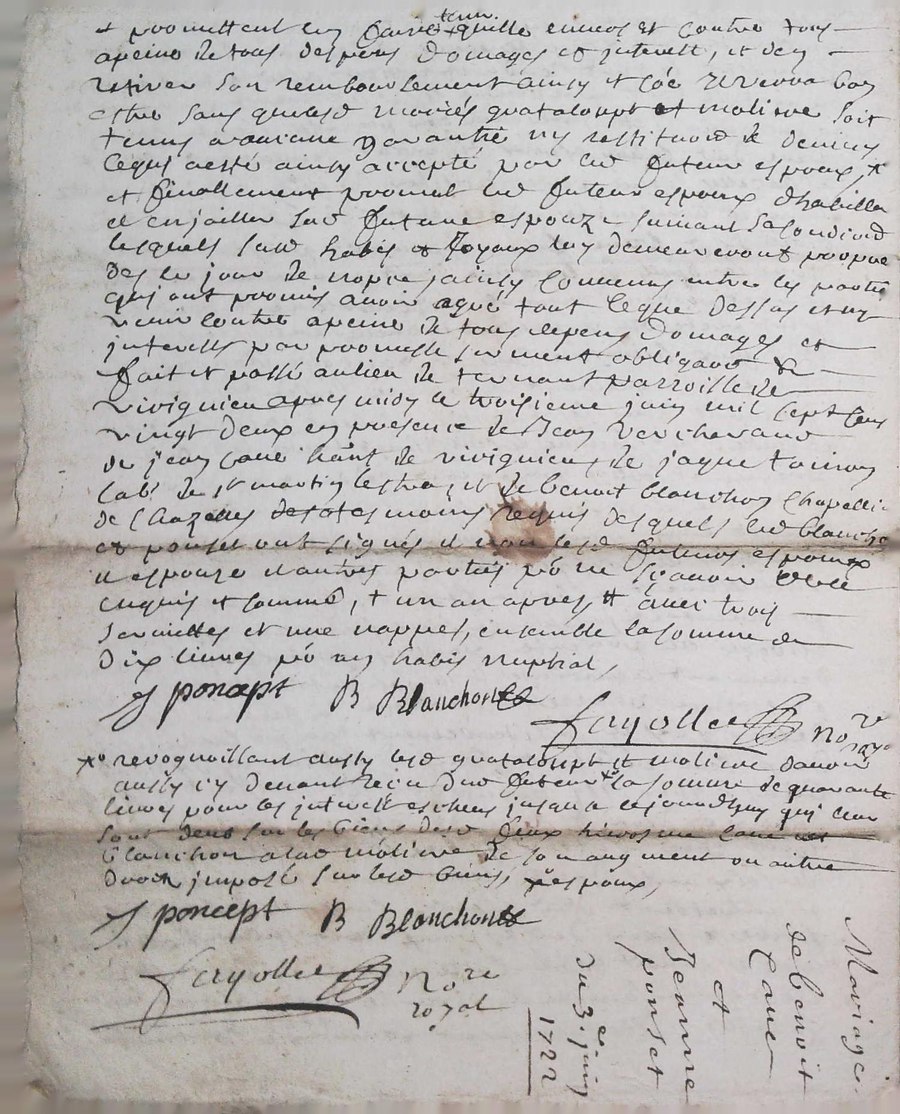 et promettent en faire tenir quitte envers et contre tous
apeine de tous despens domages et interest, et den
retirer son remboursement ainsy et coe verra bon
estre sans que lesd mariés quataloupt et molivre soit
tenus a aucune garantie ny restitution de deniers
lequel a esté ainsy accepté par led futeur espoux, x
et finallement promet led futeur espoux dhabiller
et enjailler sad future espouze suivant sa condiond
lesquels susd habis et Joyaux luy demeureront propre
des le jour de nopce, ainsy convenus entre les parties
qui ont promis avoir agré tout ceque dessus et ny
venir contre apeine de tous depens domages et
interests par promesse serment obligaon &
fait et passé au lieu de ternant parroisse de
virignieu apres midy le troisieme juin mil sept cens
vingt deux en presence de Jean Vercherand
de jean cave hant de virignieu, de jaque
lab de st martin lestra, et de benoit blanchon chapellier
de Chazelles tesmoins requis desquels led blanchon
et ponset ont signés et non lesd futurs espoux
et espouze et autres parties po ne sçavoir
enquis et sommé, + un an apres, # avec trois
serviettes et une nappes, ensemble la somme de
dix livres po un habis nuptial,
J poncept B Blanchon
fayolle nore
royal
x revoquillant aussy lesd quataloupt et molivre davoir
aussy cy devant receu dud futeur la somme de quarante
livres pour les interest escheus jusqua cejourdhuy qui leur
sont deus sur les biens desd feux hierosme cave et
blanchon a lad molivre de son augment ou autre
droit imposé sur lesd biens, espoux,
J poncept B Blanchon
fayolle nore
royal
Mariage
de benoit
Cave
et
Jeanne
ponset
du 3.e juin
1722